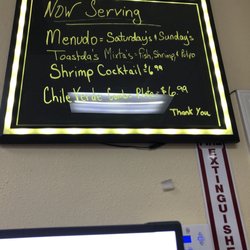 Now Serving
Menudo = Saturday's & Sunday's
Toastda's Mixta's = Fish, Shrimp, & Pulpo
Shrimp Cocktail $6.99
Chile Verde Combo Plate = $6.99
Thank You
FIRE
EXTINGUISHER